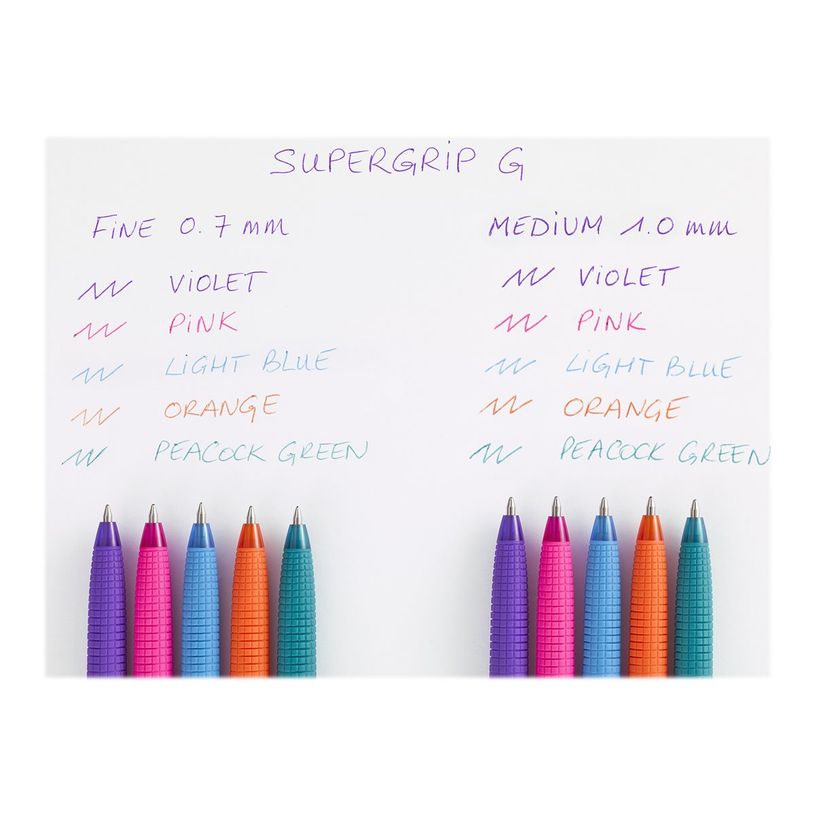 SUPERGRiP G
FiNE 0.7 mm
ViOLET
PiNK
LiGHT BLUE
ORANGE
PEACOCK GREEN
MEDiUM 1.0 mm
ViOLET
PiNK
LiGHT BLUE
ORANGE
PEACOCK GREEN